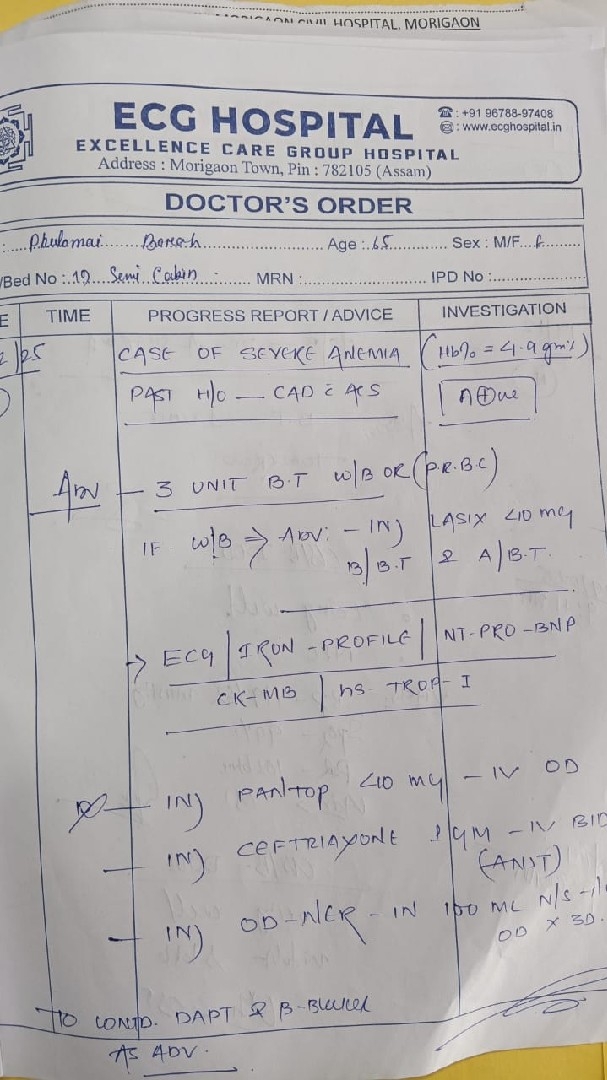 MORIGAON CIVIL HOSPITAL, MORIGAON
ECG HOSPITAL
☎ : +91 96788-97408
: www.ecghospital.in
EXCELLENCE CARE GROUP HOSPITAL
Address : Morigaon Town, Pin : 782105 (Assam)
DOCTOR'S ORDER
: Phulomai Borah Age : 65 Sex : M/F... F
/Bed No : 19 Semi Cabin MRN : IPD No :
E TIME PROGRESS REPORT / ADVICE INVESTIGATION
2/25 CASE OF SEVERE ANEMIA (Hb% = 4.9 gm's)
PAST H/O — CAD c̄ ACS
Adv — 3 UNIT B.T W/B OR (P.R.B.C)
IF W/B ⇒ Adv: - INJ LASIX 40 mg
B/B.T & A/B.T.
→ ECG | IRON - PROFILE | NT-PRO-BNP
CK-MB | hs TROP-I
— INJ PANTOP 40 mg — IV OD
— INJ CEFTRIAXONE 1 GM — IV BID
(ANST)
— INJ OD-NER - IN 100 ML N/S
OD X 3D.
TO CONTD. DAPT & B-Blocker
AS ADV.